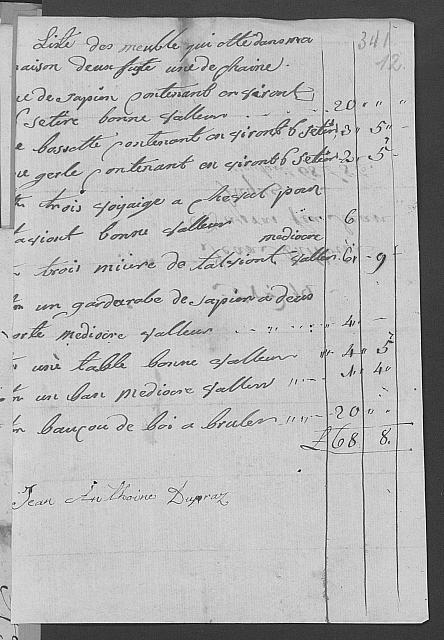 341
12
Liste des meuble qui otte dans ma
maison deux fuste une de chaine
ne de sapion contenant en viront
6 setire bonne valleur 20 " "
e bossette contenant en viront 6 setire 3 " 5 "
ne gerle contenant en viront 6 setire 2 - 5
trois voyaige a cheval pour
bonne valleur 6
trois miure de mediocre valleur 6 - 9
un garderobe de sapion a deus
porte mediocre valleur 4 " -
une table bonne valleur 4 " 5
un ban mediocre valleur 1 " 4 "
baucou de boi a bruler 20 " "
£ 68 8.
Jean Anthoine Dupraz